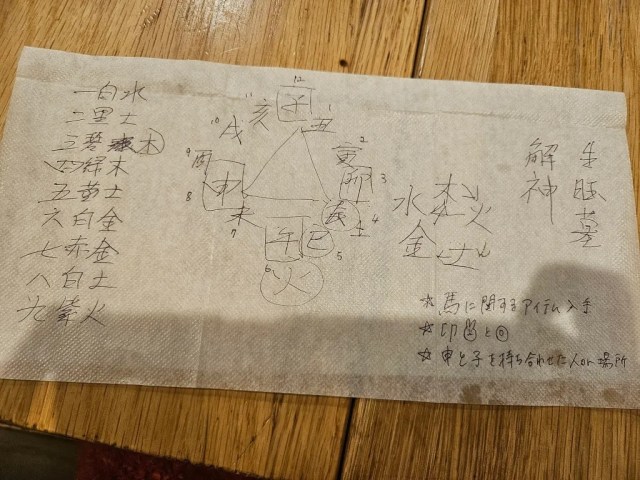 一白水
二黒土
三碧木
四緑木
五黄土
六白金
七赤金
八白土
九紫火
12
子
11
亥
丑
10
戌
2
寅
9
酉
卯
3
8
申
辰
4
土
未
7
午
巳
5
6
火
木
火
水
金
土
解神
生旺墓
☆ 馬に関するアイテム入手
☆ 印
☆ 申と子を持ち合わせた人or場所